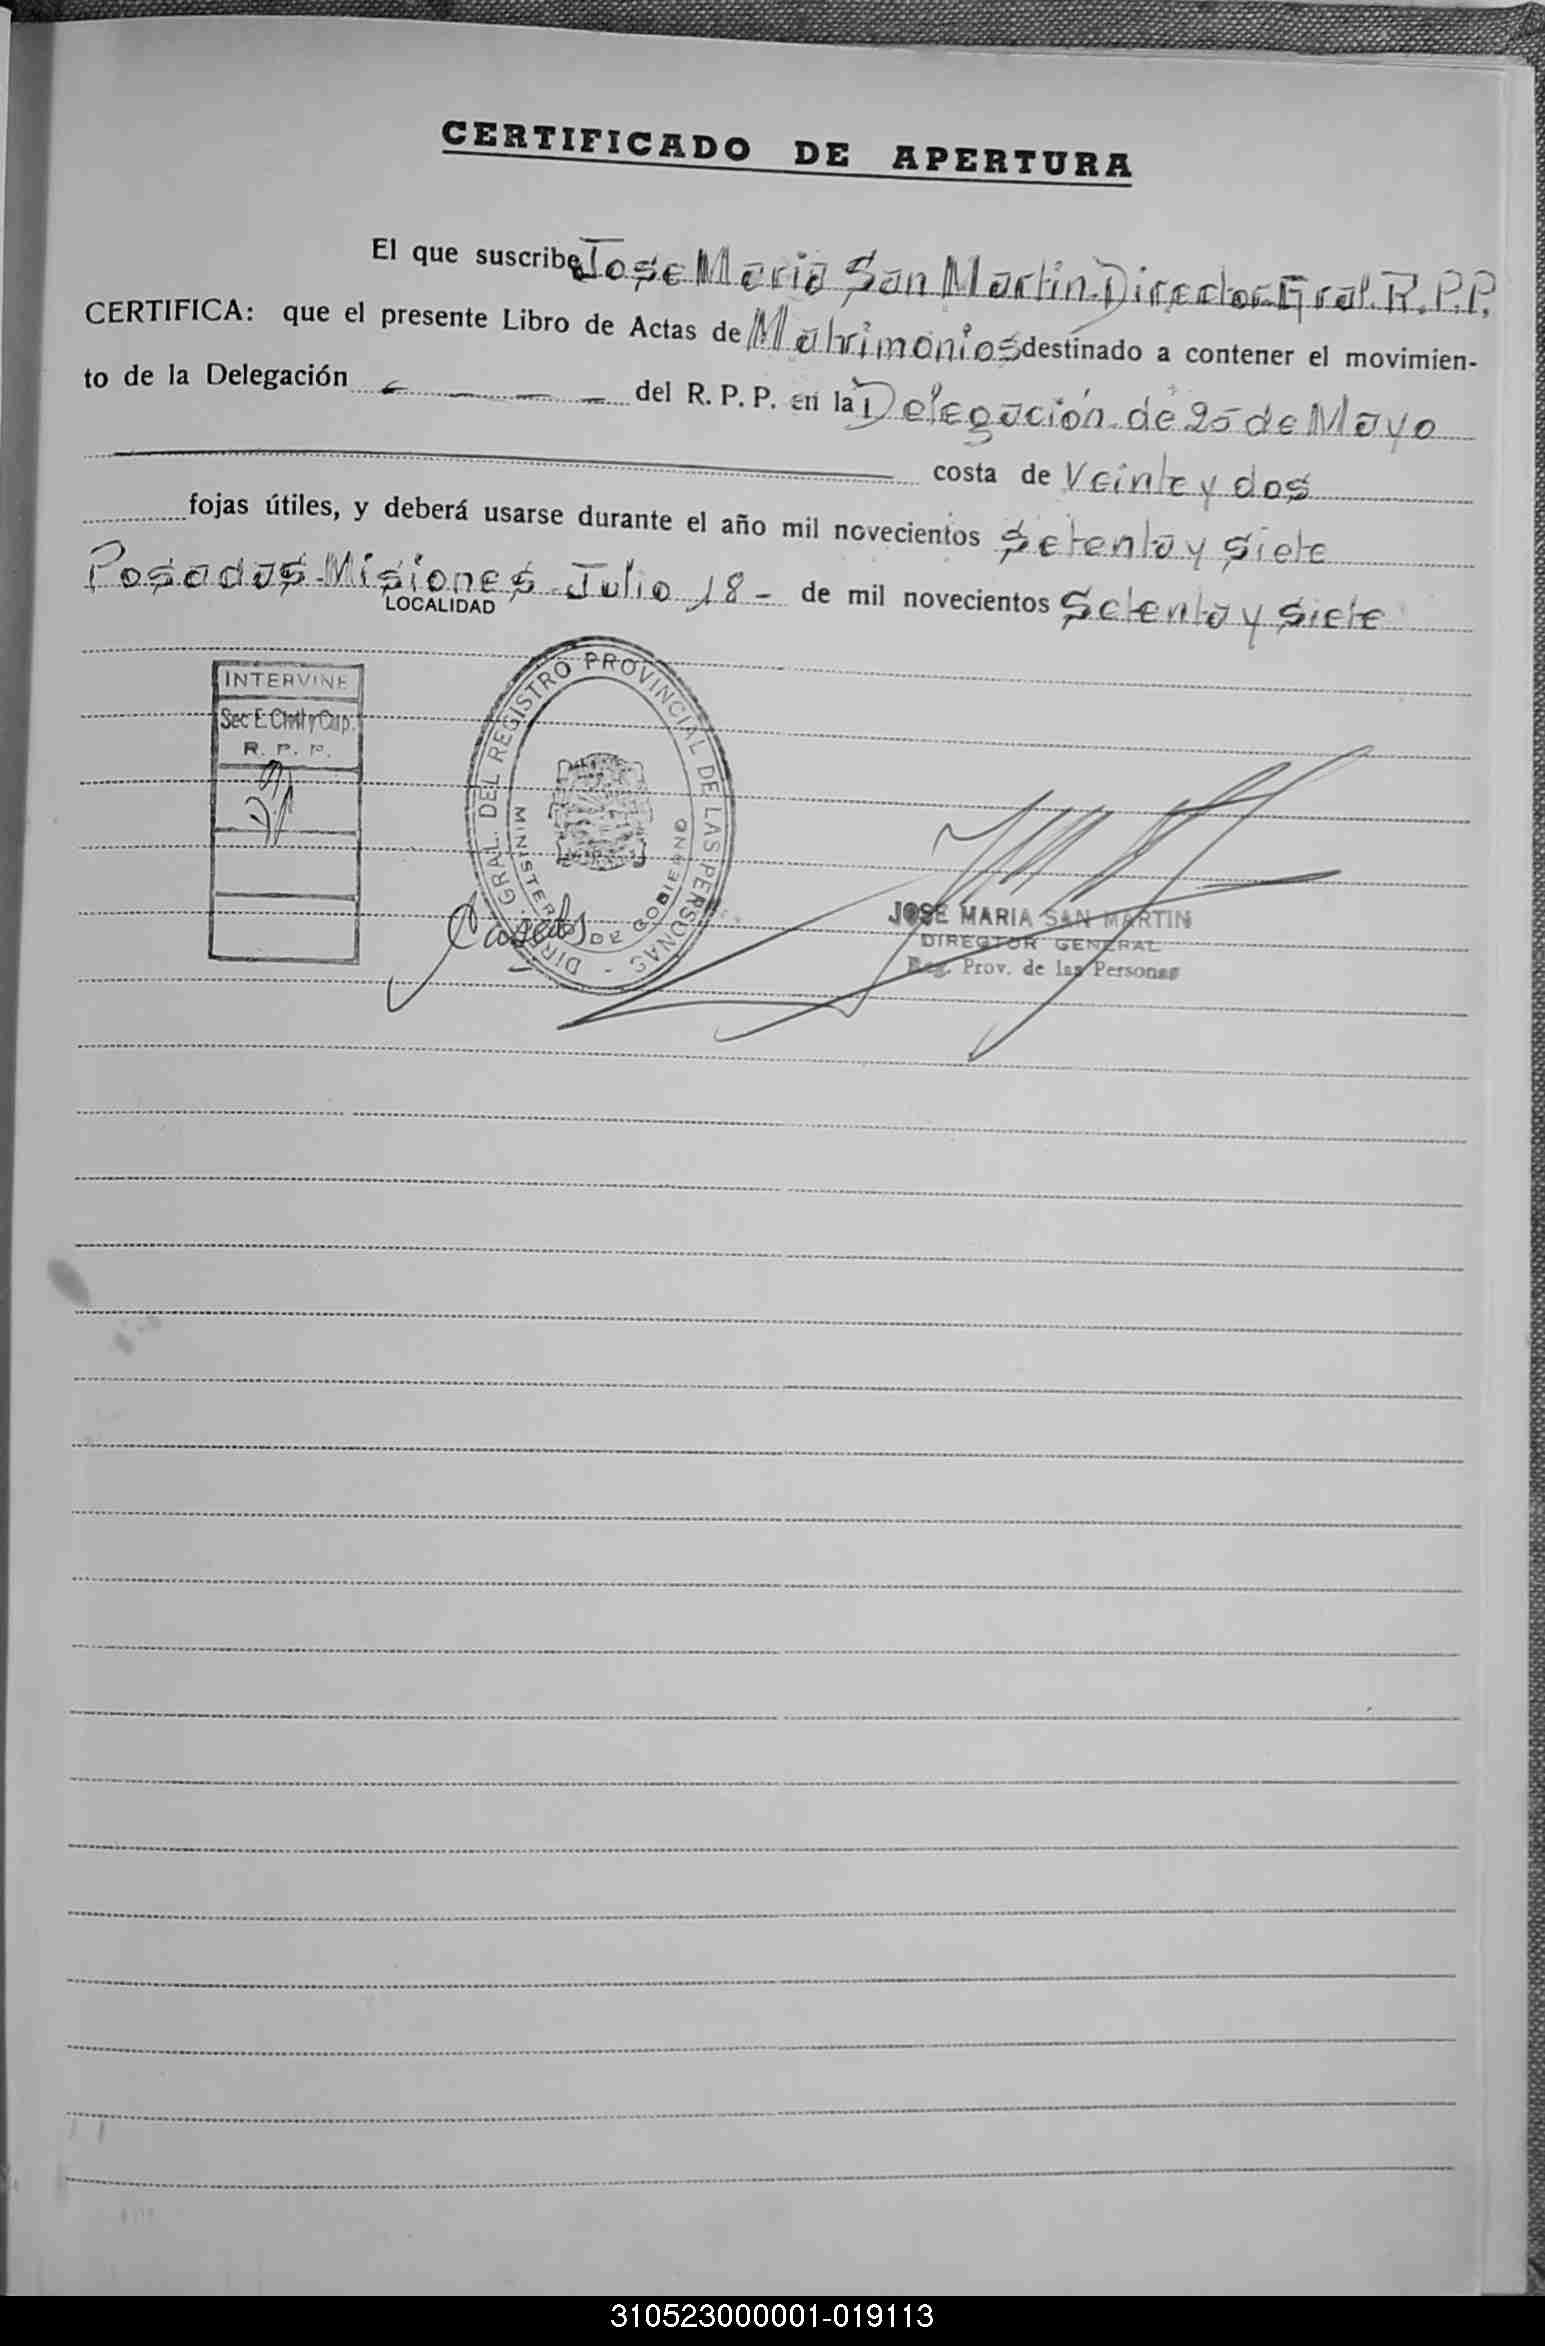 CERTIFICADO DE APERTURA
El que suscribe Jose Maria San Martin. Director Gral. R.P.P.
CERTIFICA: que el presente Libro de Actas de Matrimonios destinado a contener el movimien-
to de la Delegación del R. P. P. en la Delegación de 25 de Mayo
costa de Veinte y dos
fojas útiles, y deberá usarse durante el año mil novecientos Setenta y Siete
Posadas-Misiones-Julio 18 - de mil novecientos Setenta y Siete
LOCALIDAD
INTERVINE
Sec. E. Civil y Cap.
R. P. P.
DIR. GRAL. DEL REGISTRO PROVINCIAL DE LAS PERSONAS -
MINISTERIO DE GOBIERNO
JOSE MARIA SAN MARTIN
DIRECTOR GENERAL
Reg. Prov. de las Personas
310523000001-019113